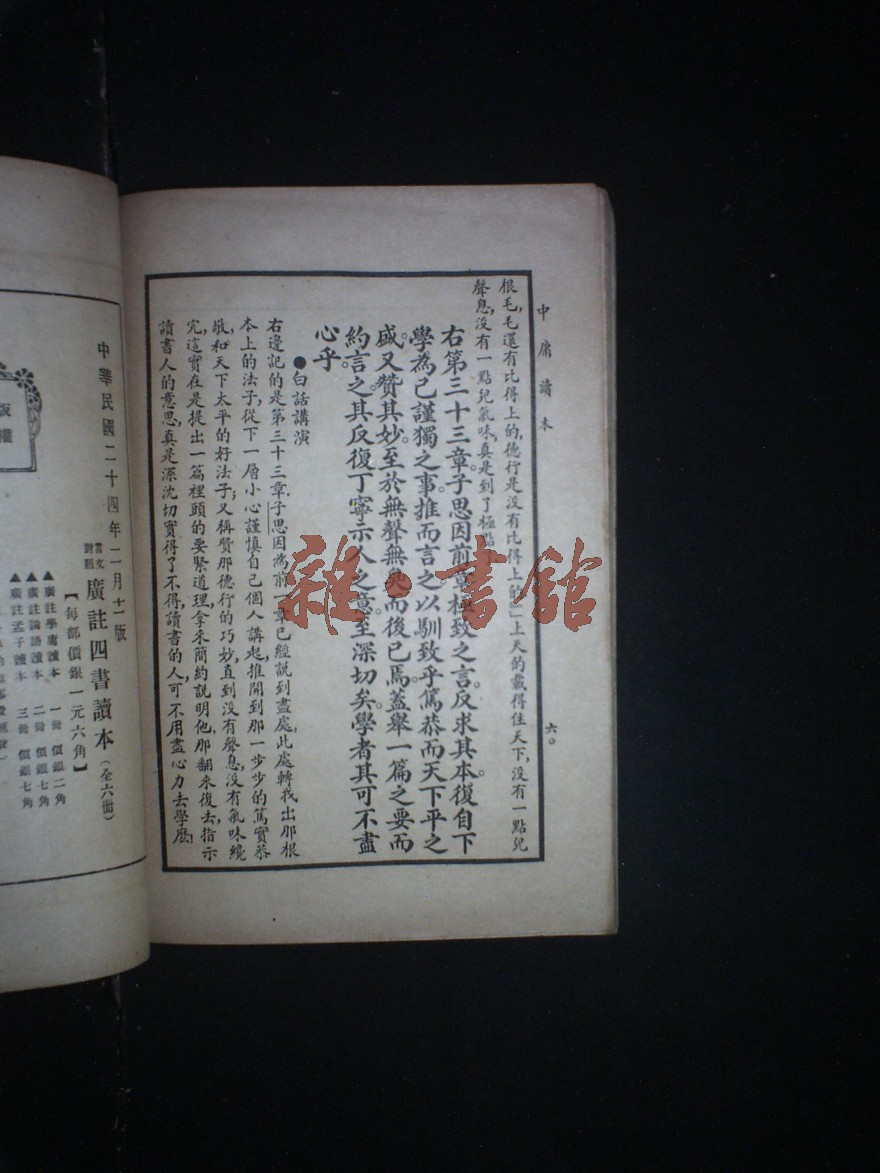 中庸讀本
六〇
根毛,毛還有比得上的,德行是沒有比得上的二上天的戴得住天下,沒有一點兒
聲息,沒有一點兒氣味,真是到了極點
右第三十三章。子思因前章極致之言。反求其本。復自下
學為己謹獨之事。推而言之。以馴致乎篤恭而天下平之
盛。又贊其妙。至於無聲無臭而後已焉。蓋舉一篇之要而
約言之。其反復丁寧示人之意。至深切矣。學者其可不盡
心乎。
●白話講演
右邊記的是第三十三章,子思因為前一章已經說到盡處,此處轉找出那根
本上的法子,從下一層小心謹慎自己個人講起,推開到那一步步的篤實恭
敬,和天下太平的好法子;又稱贊那德行的巧妙,直到沒有聲息,沒有氣味纔
完,這實在是提出一篇裡頭的要緊道理,拿來簡約說明他,那翻來復去,指示
讀書人的意思,真是深沈切實得了不得,讀書的人,可不用盡心力去學麽
中華民國二十四年二月十二版
言文對照 廣註四書讀本(全六冊)
【每部價銀一元六角】
▲廣註學庸讀本 一冊 價銀二角
▲廣註論語讀本 二冊 價銀七角
▲廣註孟子讀本 三冊 價銀七角
版權
雜·書館